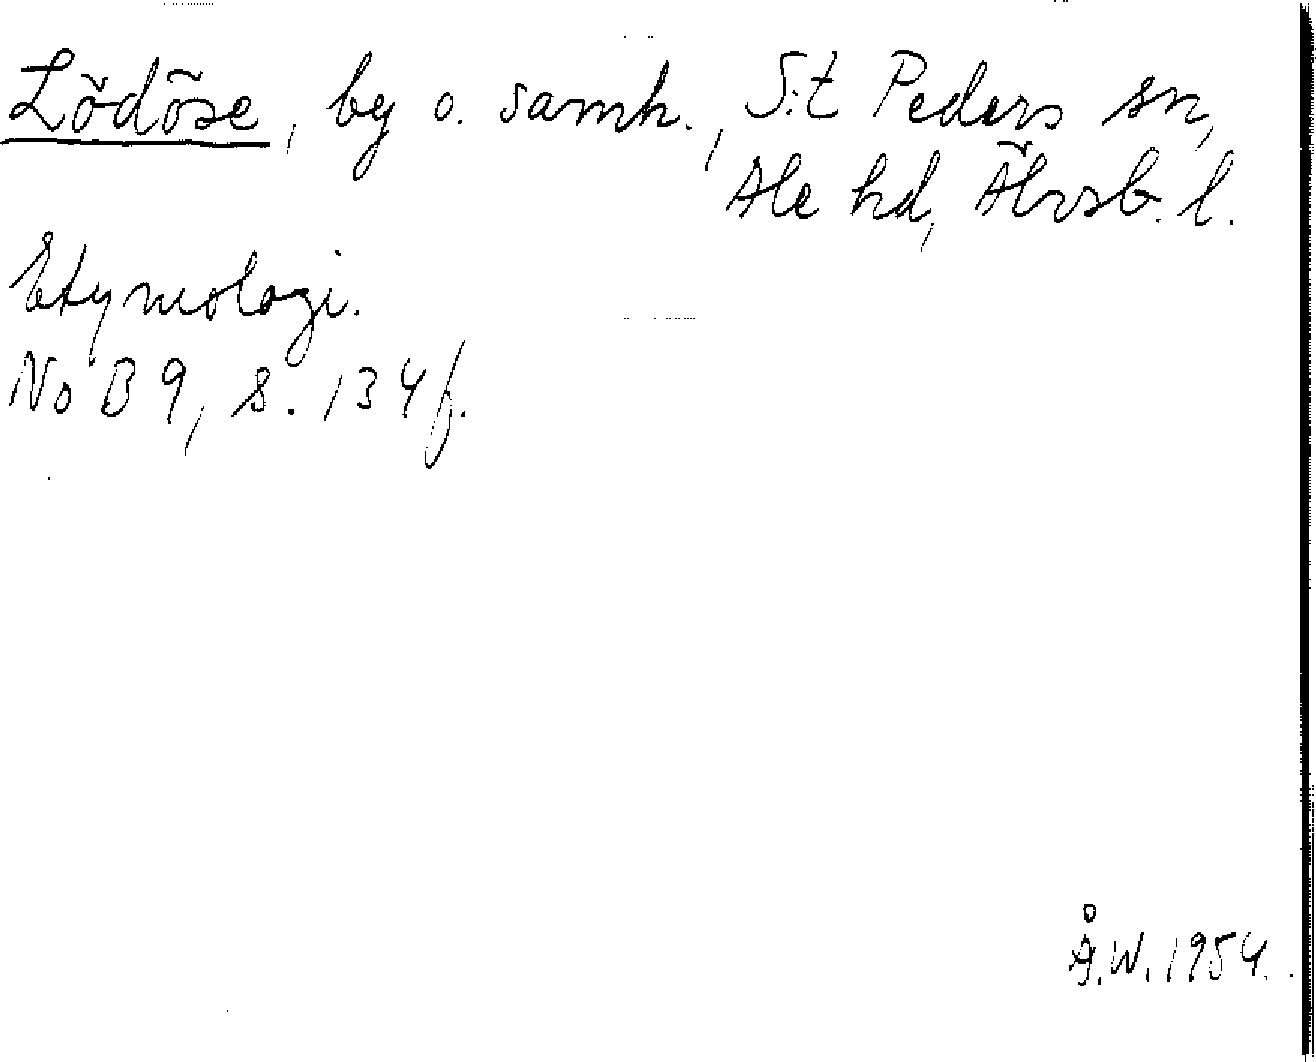 Lödöse, by o. samh., S:t Peders sn,
Ale hd, Älvsb. l.
Etymologi.
NoB 9, s. 134 f.
Å.W. 1954.